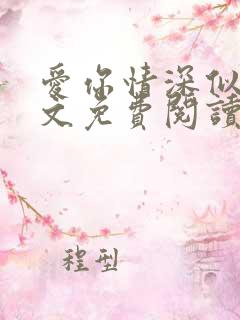 愛你情深似
文免費閱讀
程型